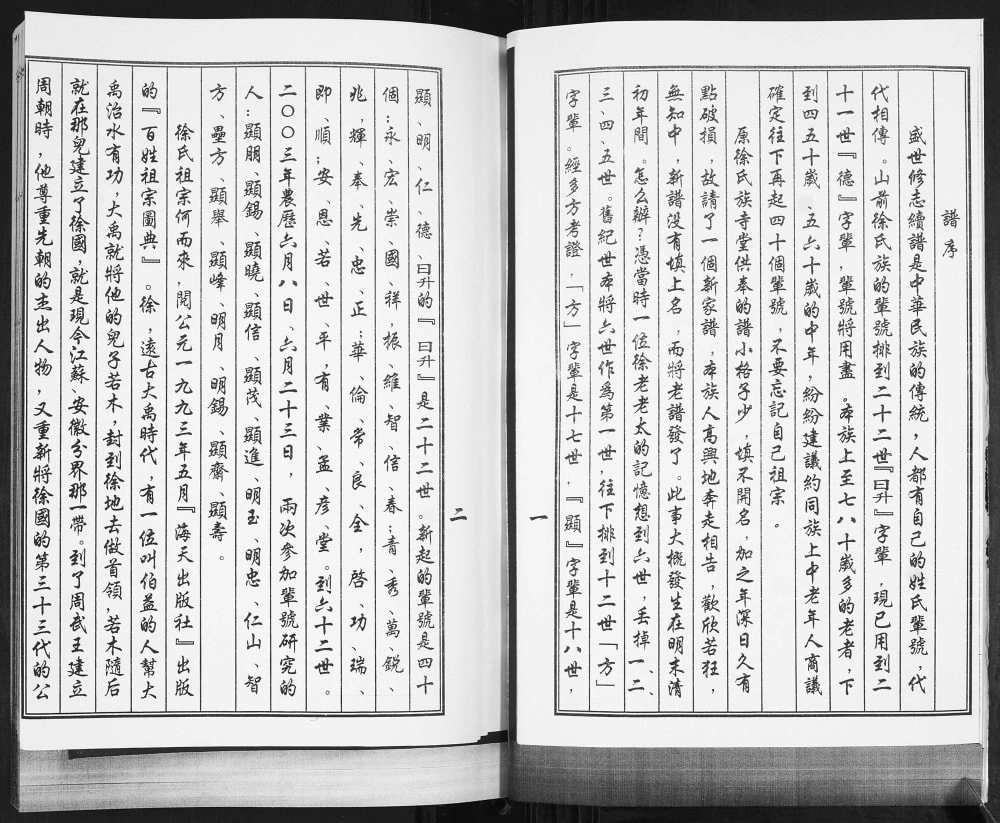 譜序
盛世修志續譜是中華民族的傳統，人都有自己的姓氏輩號，代
代相傳。山前徐氏族的輩號排到二十二世『曰升』字輩，現已用到二
十一世『德』字輩，輩號將用盡。本族上至七八十歲多的老者，下
到四五十歲、五六十歲的中年，紛紛建議約同族上中老年人商議
確定往下再起四十個輩號，不要忘記自己祖宗。
原徐氏族寺堂供奉的譜小格子少，填不開名，加之年深日久有
點破損，故請了一個新家譜，本族人高興地奔走相告，歡欣若狂，
無知中，新譜没有填上名，而將老譜發了。此事大概發生在明末清
初年間。怎么辦？憑當時一位徐老老太的記憶想到六世，丢掉一、二
三、四、五世。舊紀世本將六世作爲第一世，往下排到十二世「方」
字輩。經多方考證，「方」字輩是十七世，『顯』字輩是十八世，
一
顯、明、仁、德、曰升的『曰升』是二十二世。新起的輩號是四十
個：永、宏、崇、國、祥，振、維、智、信、春；青、秀、萬、鋭、
兆，輝、奉、先、忠、正；華、倫、常、良、全，啓、功、瑞、
即、順；安、恩、若、世、平，有、業、孟、彦、堂。到六十二世。
二〇〇三年農歷六月八日、六月二十三日，兩次參加輩號研究的
人：顯朋、顯錫、顯曉、顯信、顯茂、顯進、明玉、明忠、仁山、智
方、壘方、顯舉、顯峰、明月、明錫、顯齋、顯壽。
徐氏祖宗何而來，閲公元一九九三年五月『海天出版社』出版
的『百姓祖宗圖典』。徐，遠古大禹時代，有一位叫伯益的人幫大
禹治水有功，大禹就將他的兒子若木，封到徐地去做首領，若木隨后
就在那兒建立了徐國，就是現今江蘇、安徽分界那一帶。到了周武王建立
周朝時，他尊重先朝的杰出人物，又重新將徐國的第三十三代的公
二